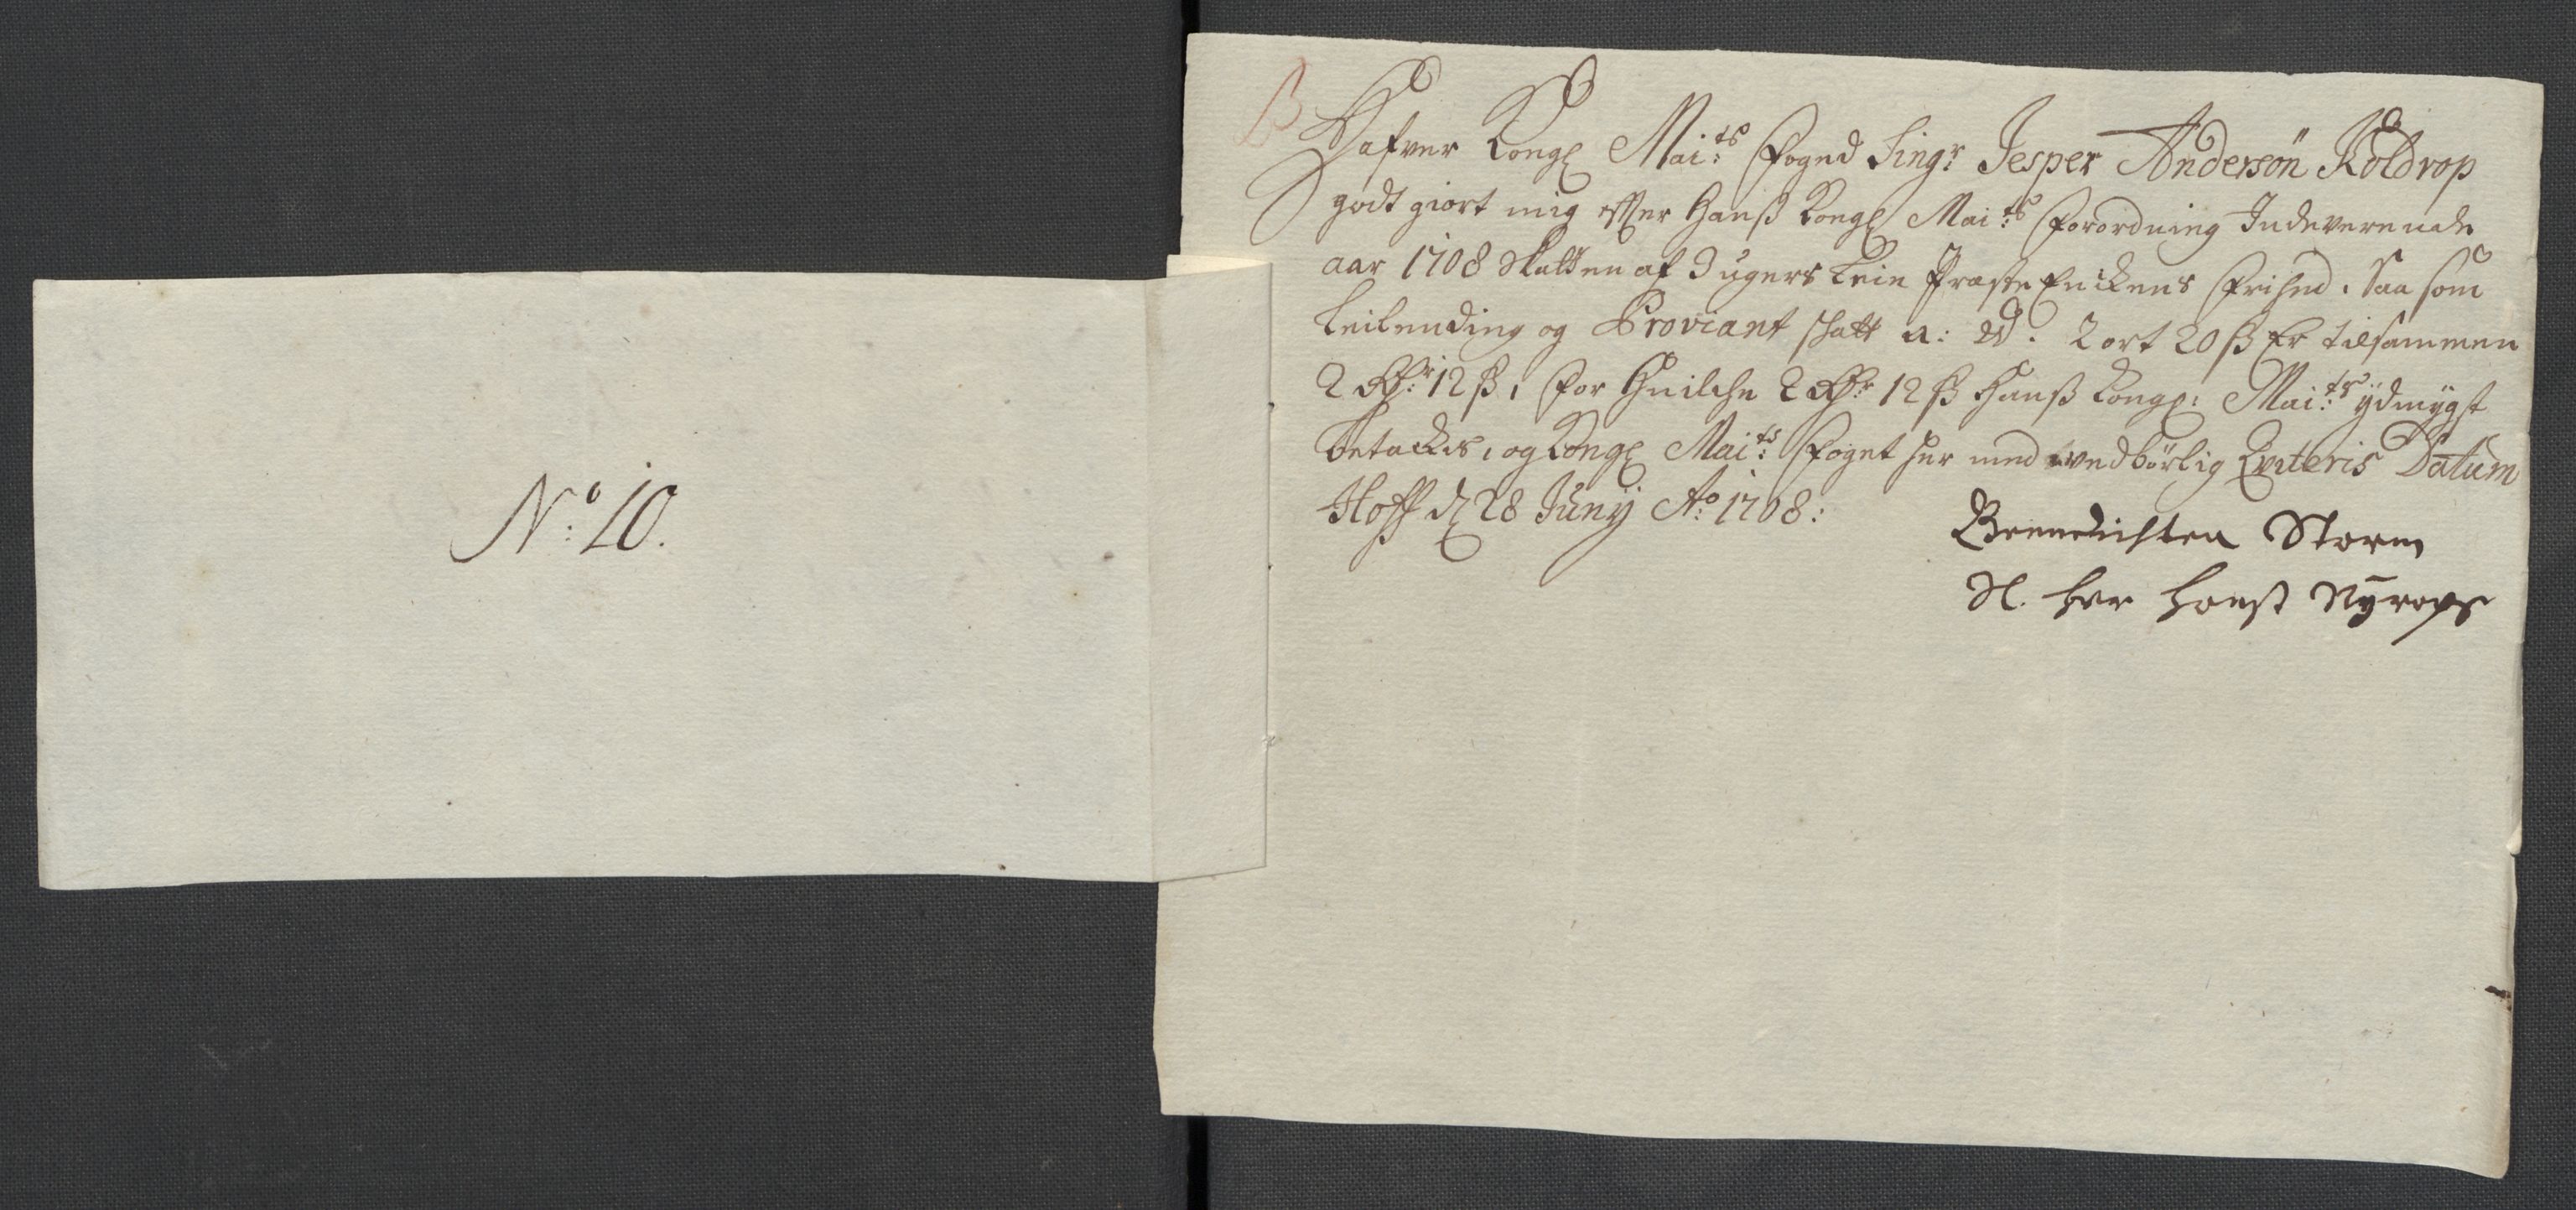 No: 10.
B
Hafver Kongl Maits: Foged Sing.r Jesper Andersön Koldrop
godt giort mig efter Hanß Kongl Maits: Forordning Indeverende
aar 1708 Skatten af 3 ugers leie Præste Enckens Frihed. Saa som
Leilending og Proviant skatt a: 2 ort 20 ß Er tilsammen
2 Rdr: 12 ß, For Huilche 2 Rdr: 12 ß Hanß Kongl: Maits: ydmygst
betackes, og Kongl Maits: Foget her med vedbörlig Qviteris Datum
Hoff d 28 Juny Ao: 1708:
Bennedichten Storm
Sl. her Hanß Nyrops